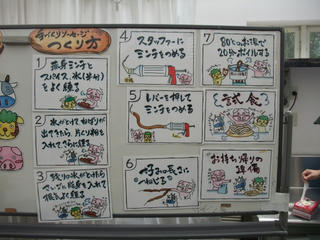 手づくりソーセージ
つくり方
1
赤身ミンチと
スパイス、氷(半分)
をよく練る
2
氷がとけてねばりが
出てきたら、片くり粉を
入れてさらに練る
3
残りの氷がとけたら
脂身を入れて
よく練る
4
スタッファーに
ミンチをつめる
5
レバーを押して
ミンチをつめる
6
好みの長さに
ねじる
7
80℃のお湯で
20分ボイルする
試食
お持ち帰りの
準備